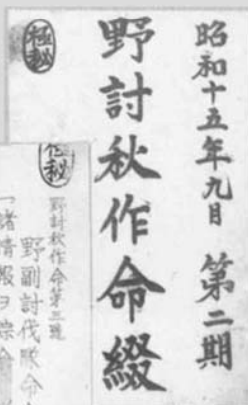 昭和十五年九月 第二期
野討秋作命綴
極秘
極秘
野討秋作命第三號
野副討伐隊命
「諸情報ヲ綜合